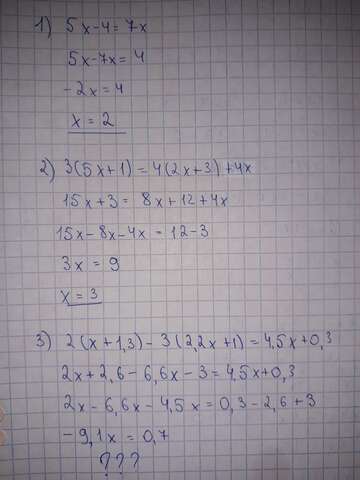 1) 5x-4=7x
5x-7x=4
-2x=4
x=2
2) 3(5x+1)=4(2x+3)+4x
15x+3=8x+12+4x
15x-8x-4x=12-3
3x=9
x=3
3) 2(x+1,3)-3(2,2x+1)=4,5x+0,3
2x+2,6-6,6x-3=4,5x+0,3
2x-6,6x-4,5x=0,3-2,6+3
-9,1x=0,7
???